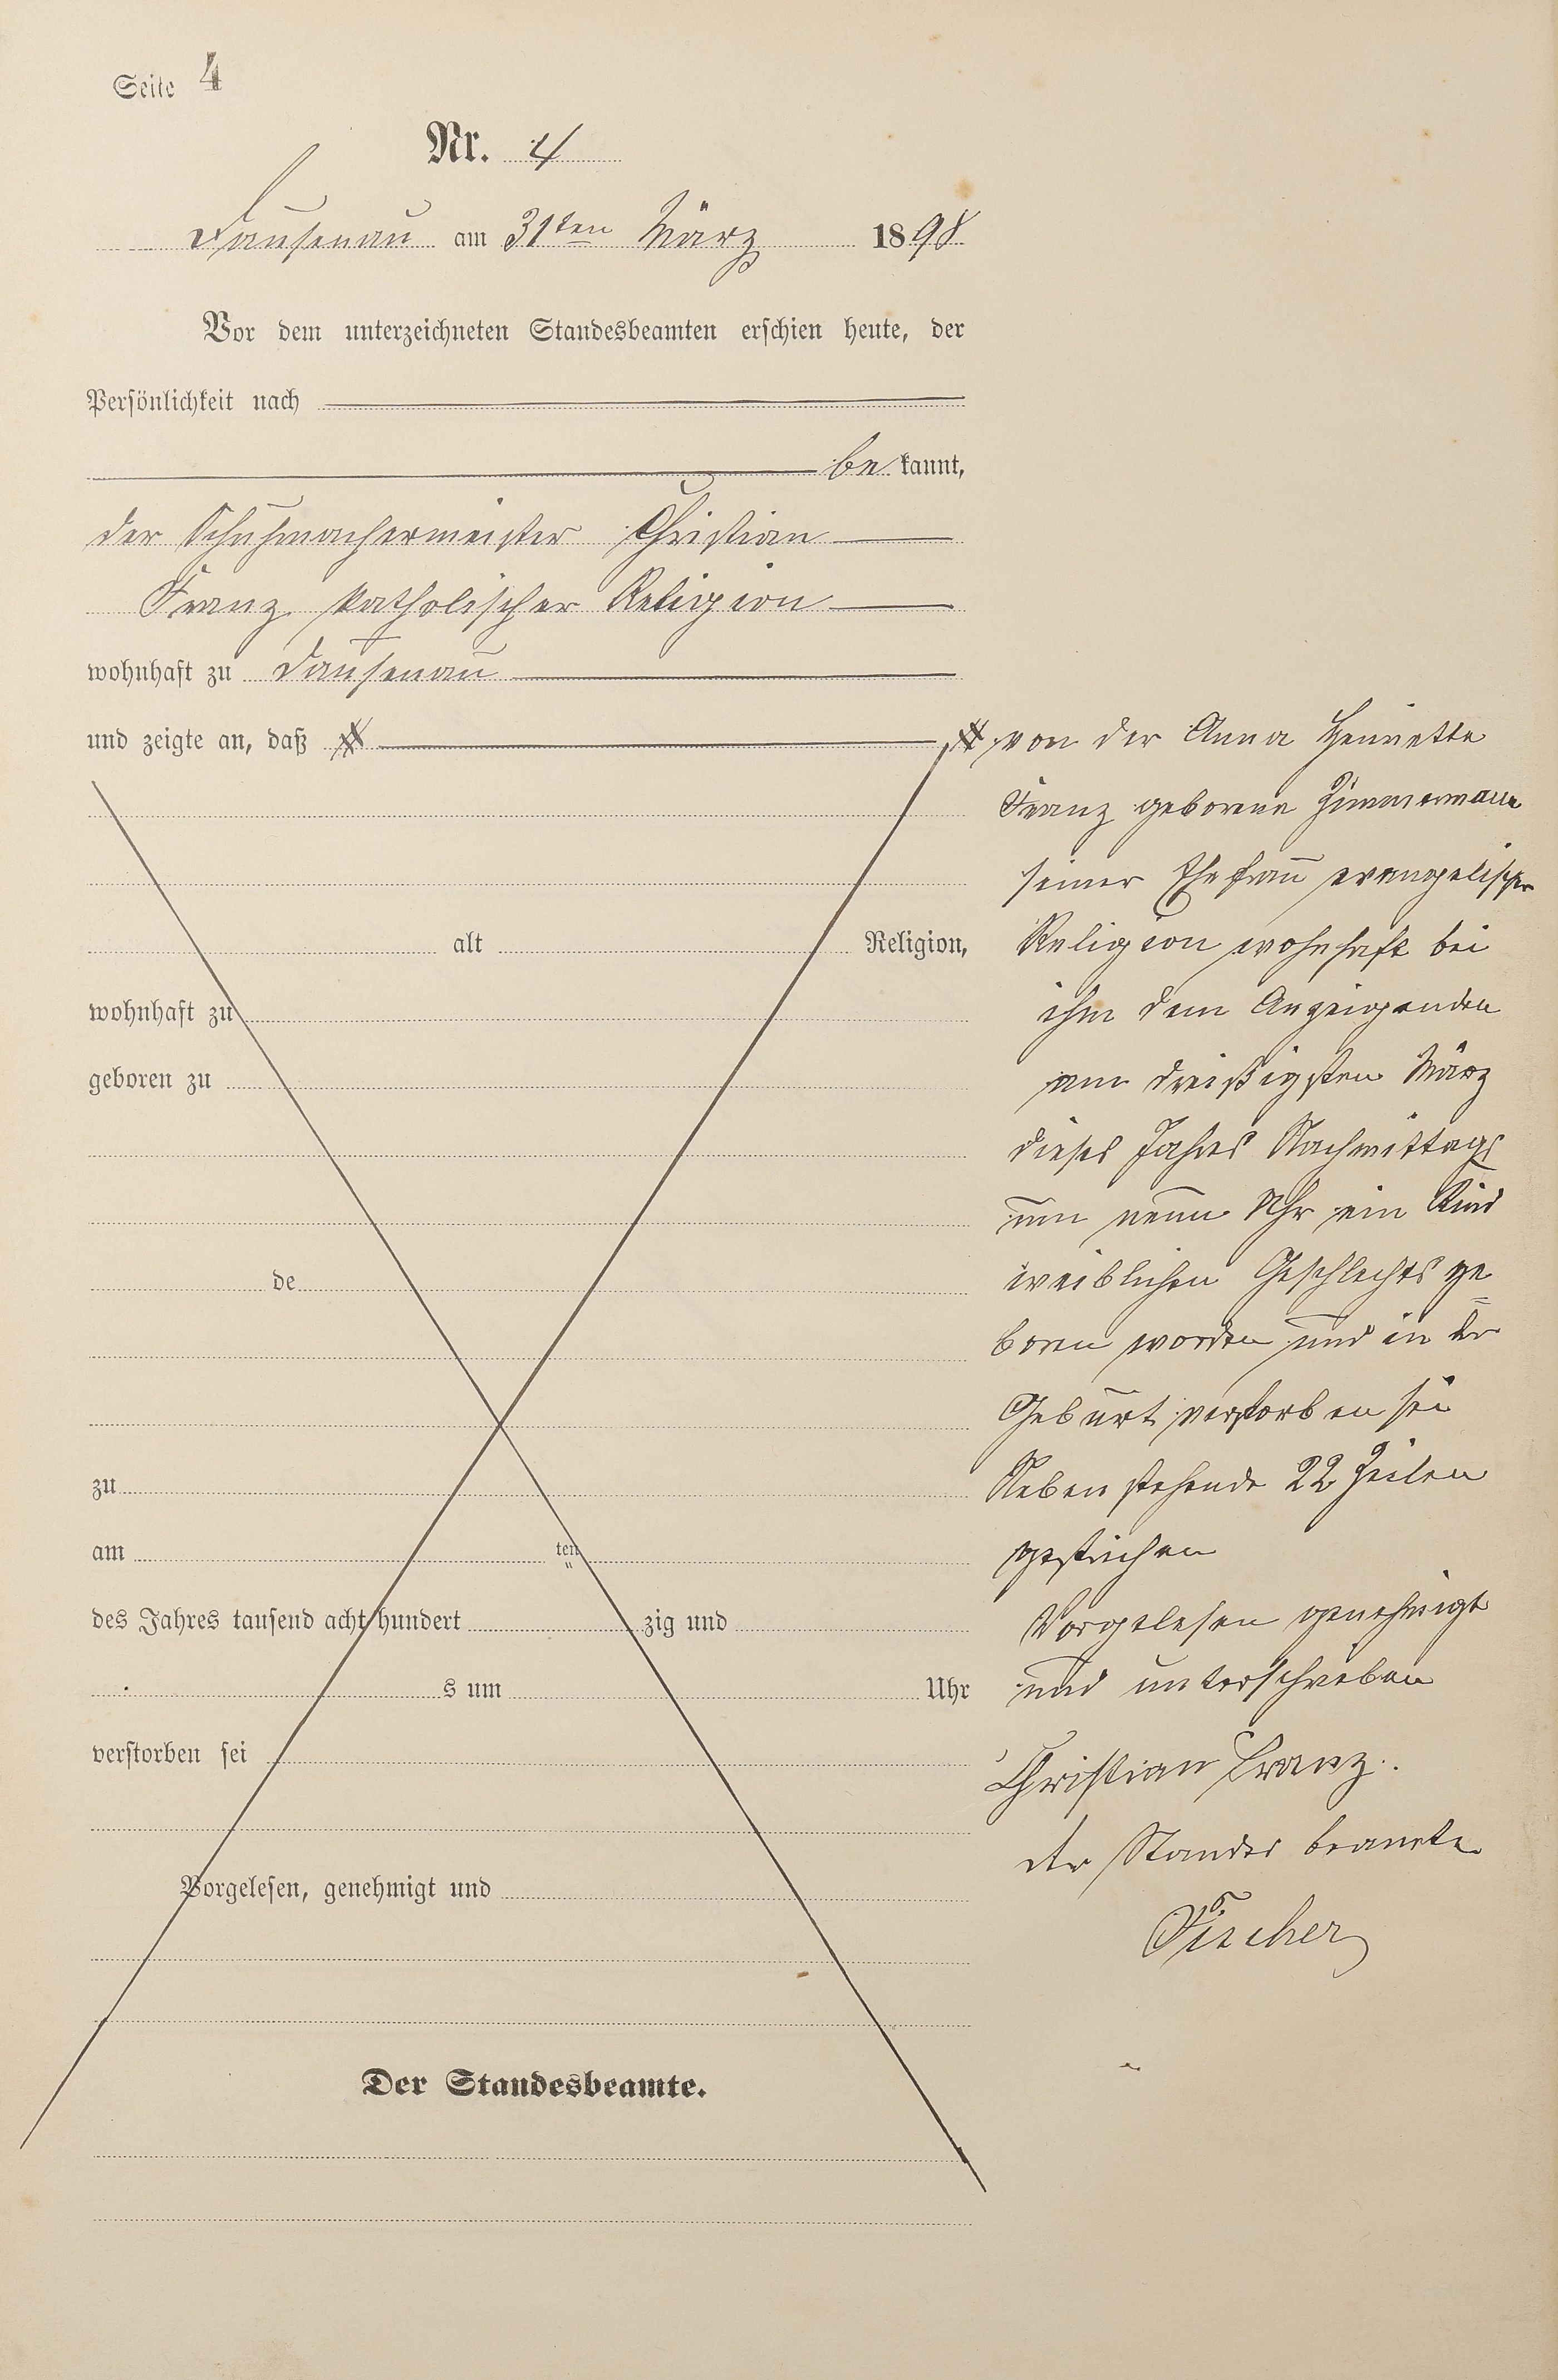 Seite 4
Nr. 4
Dausenau am 31ten März 1898
Vor dem unterzeichneten Standesbeamten erschien heute, der
Persönlichkeit nach
be kannt,
der Schuhmachermeister Christian
Franz katholischer Religion
wohnhaft zu Dausenau
und zeigte an, daß
alt Religion,
wohnhaft zu
geboren zu
de
zu
am ten
des Jahres tausend acht hundert zig und
s um Uhr
verstorben sei
Vorgelesen, genehmigt und
Der Standesbeamte.
von der Anna Henriette
Franz geborene Zimmermann
seiner Ehefrau evangelischer
Religion wohnhaft bei
ihm dem Anzeigenden
am dreißigsten März
dieses Jahres Nachmittags
um neun Uhr ein Kind
weiblichen Geschlechts ge=
boren worden und in der
Geburt verstorben sei
Neben stehende 22 Zeilen
gestrichen
Vorgelesen genehmigt
und unterschrieben
Christian Franz.
der Standes beamte
Fischer